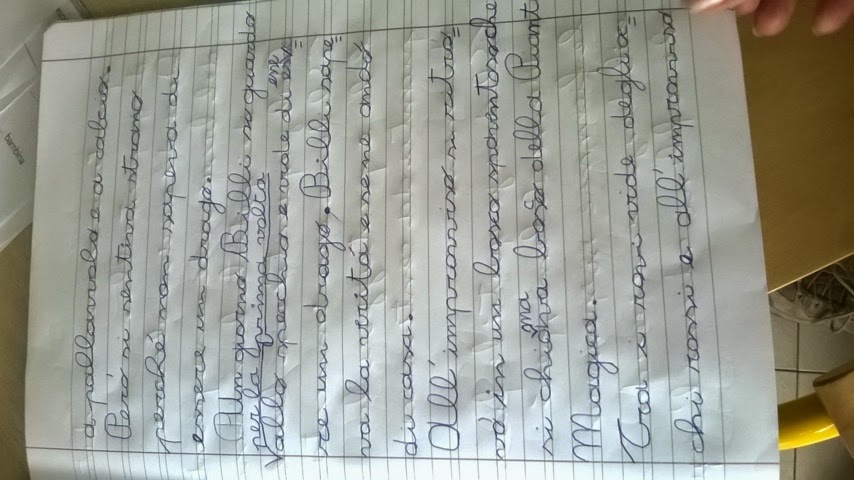 a pallavolo e a calcio.
Però si sentiva strano
perché non sapeva di
essere un drago.
Un giorno Billi si guardò
per la prima volta
allo specchio e vide di
ene
re un drago. Billi sape=
va la verità e se ne andò
di casa.
All'improvviso si ritro=
vò in un bosco spaventoso che
ma
si bosco della Piant
Magica.
Tra i rovi vide degli oc=
chi rossi e all'improvviso
bambina